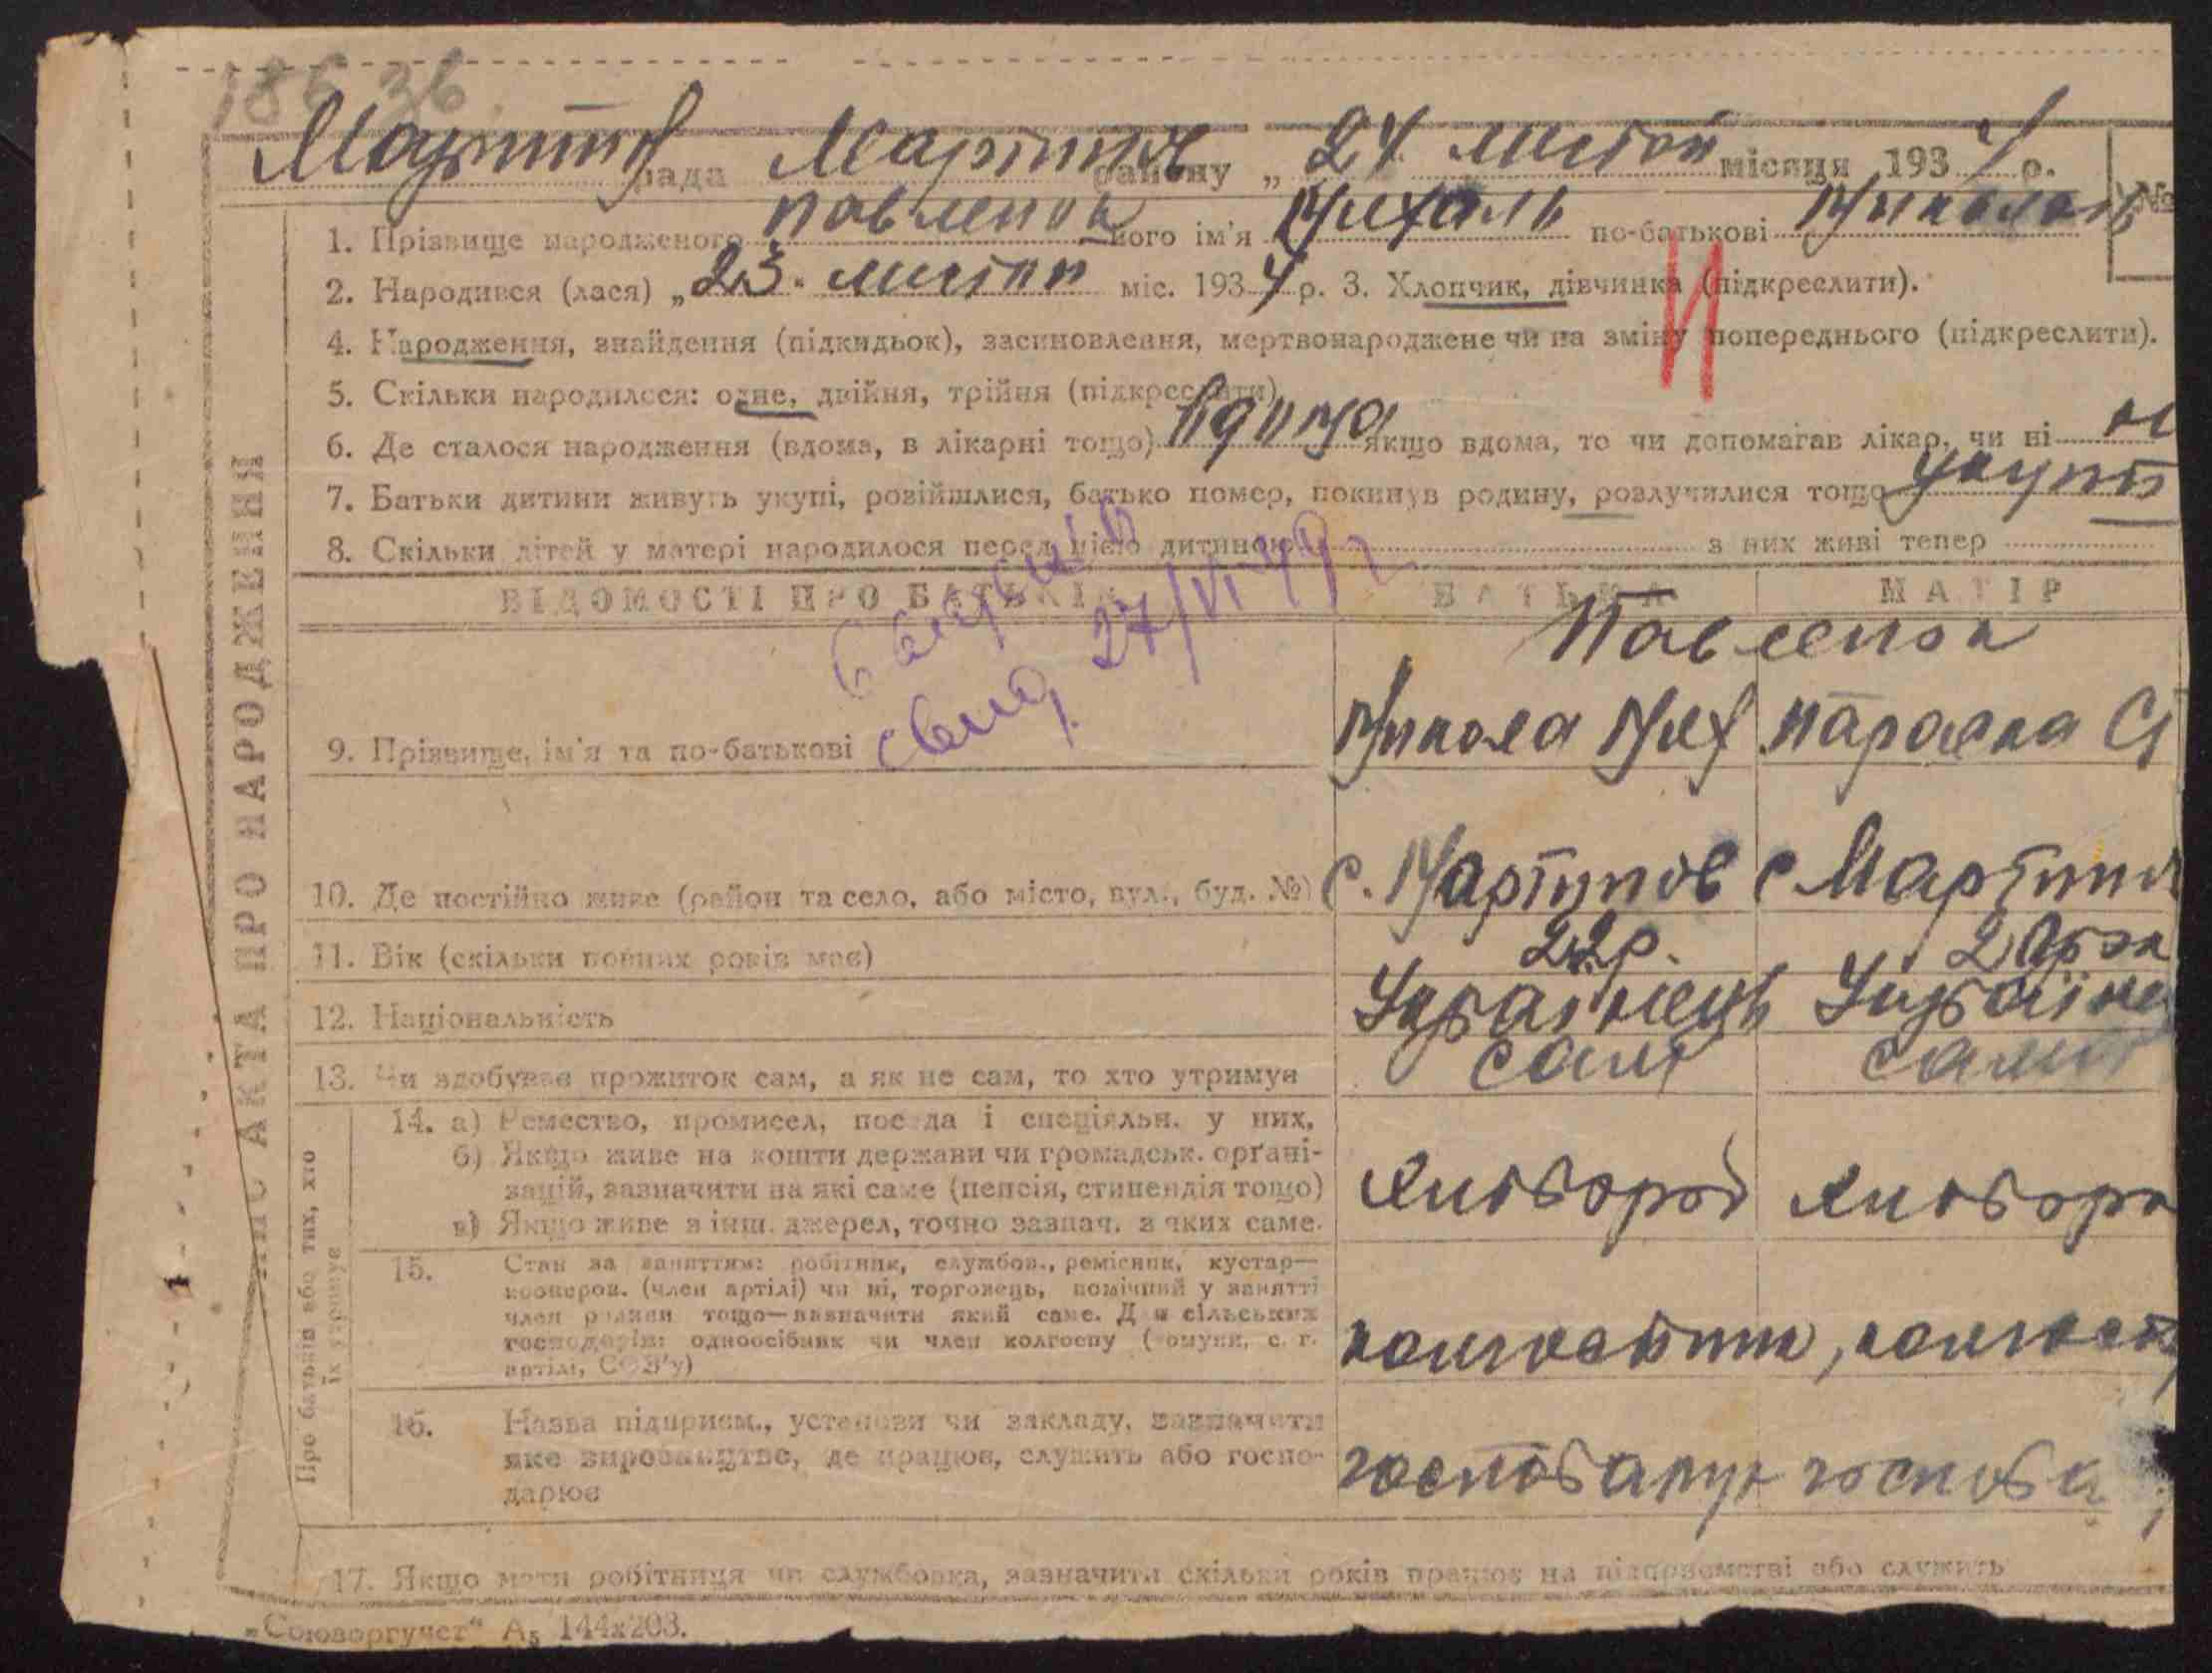 186 36
рада Мартин району „ 24 липня місяця 1934 р. №
1. Прізвище народженого Павленок його ім'я Михаль по-батькові Микол
2. Народився (лася) „23. липня міс. 1934 р. 3. Хлопчик, дівчинка (підкреслити).
4. Народження, знайдення (підкидьок), засиновлення, мертвонароджене чи на зміну попереднього (підкреслити).
И
5. Скільки народилося: одне, двійня, трійня (підкреслити)
6. Де сталося народження (вдома, в лікарні тощо) вдома якщо вдома, то чи допомагав лікар, чи ні
7. Батьки дитини живуть укупі, розійшлися, батько помер, покинув родину, розлучилися тощо укупі
8. Скільки дітей у матері народилося перед цією дитиною з них живі тепер
АКТА ПРО НАРОДЖЕННЯ
ВІДОМОСТІ ПРО БАТЬКІВ БАТЬКА МАТІР
свид. 27/VI 49 г
Павленок
9. Прізвище, ім'я та по-батькові Микола Мих Параска
10. Де постійно живе (район та село, або місто, вул., буд. №) с. Мартинов с Мартин
11. Вік (скільки повних років має) 22 р. 20
12. Національність Українець Україне
13. Чи здобуває прожиток сам, а як не сам, то хто утримує сам сама
Про батьків або тих, хто їх утримує
14. а) Ремество, промисел, посада і спеціяльн. у них,
б) Якщо живе на кошти держави чи громадськ. орґані-
зацій, зазначити на які саме (пенсія, стипендія тощо) хлібороб хлібор
в) Якщо живе з інш. джерел, точно зазнач. з яких саме.
15. Стан за заняттям: робітник, службов., ремісник, кустар—
кооперов. (член артілі) чи ні, торговець, помічний у занятті
член родини тощо—зазначити який саме. Для сільських
господарів: одноосібник чи член колгоспу (комуни, с. г.
артілі, СОЗ'у)
16. Назва підприєм., установи чи закладу, зазначити
яке виробництво, де працює, служить або госпо-
дарює
17. Якщо мати робітниця чи службовка, зазначити скільки років працює на підприємстві або служить
„Союзоргучет" А₅ 144х203.